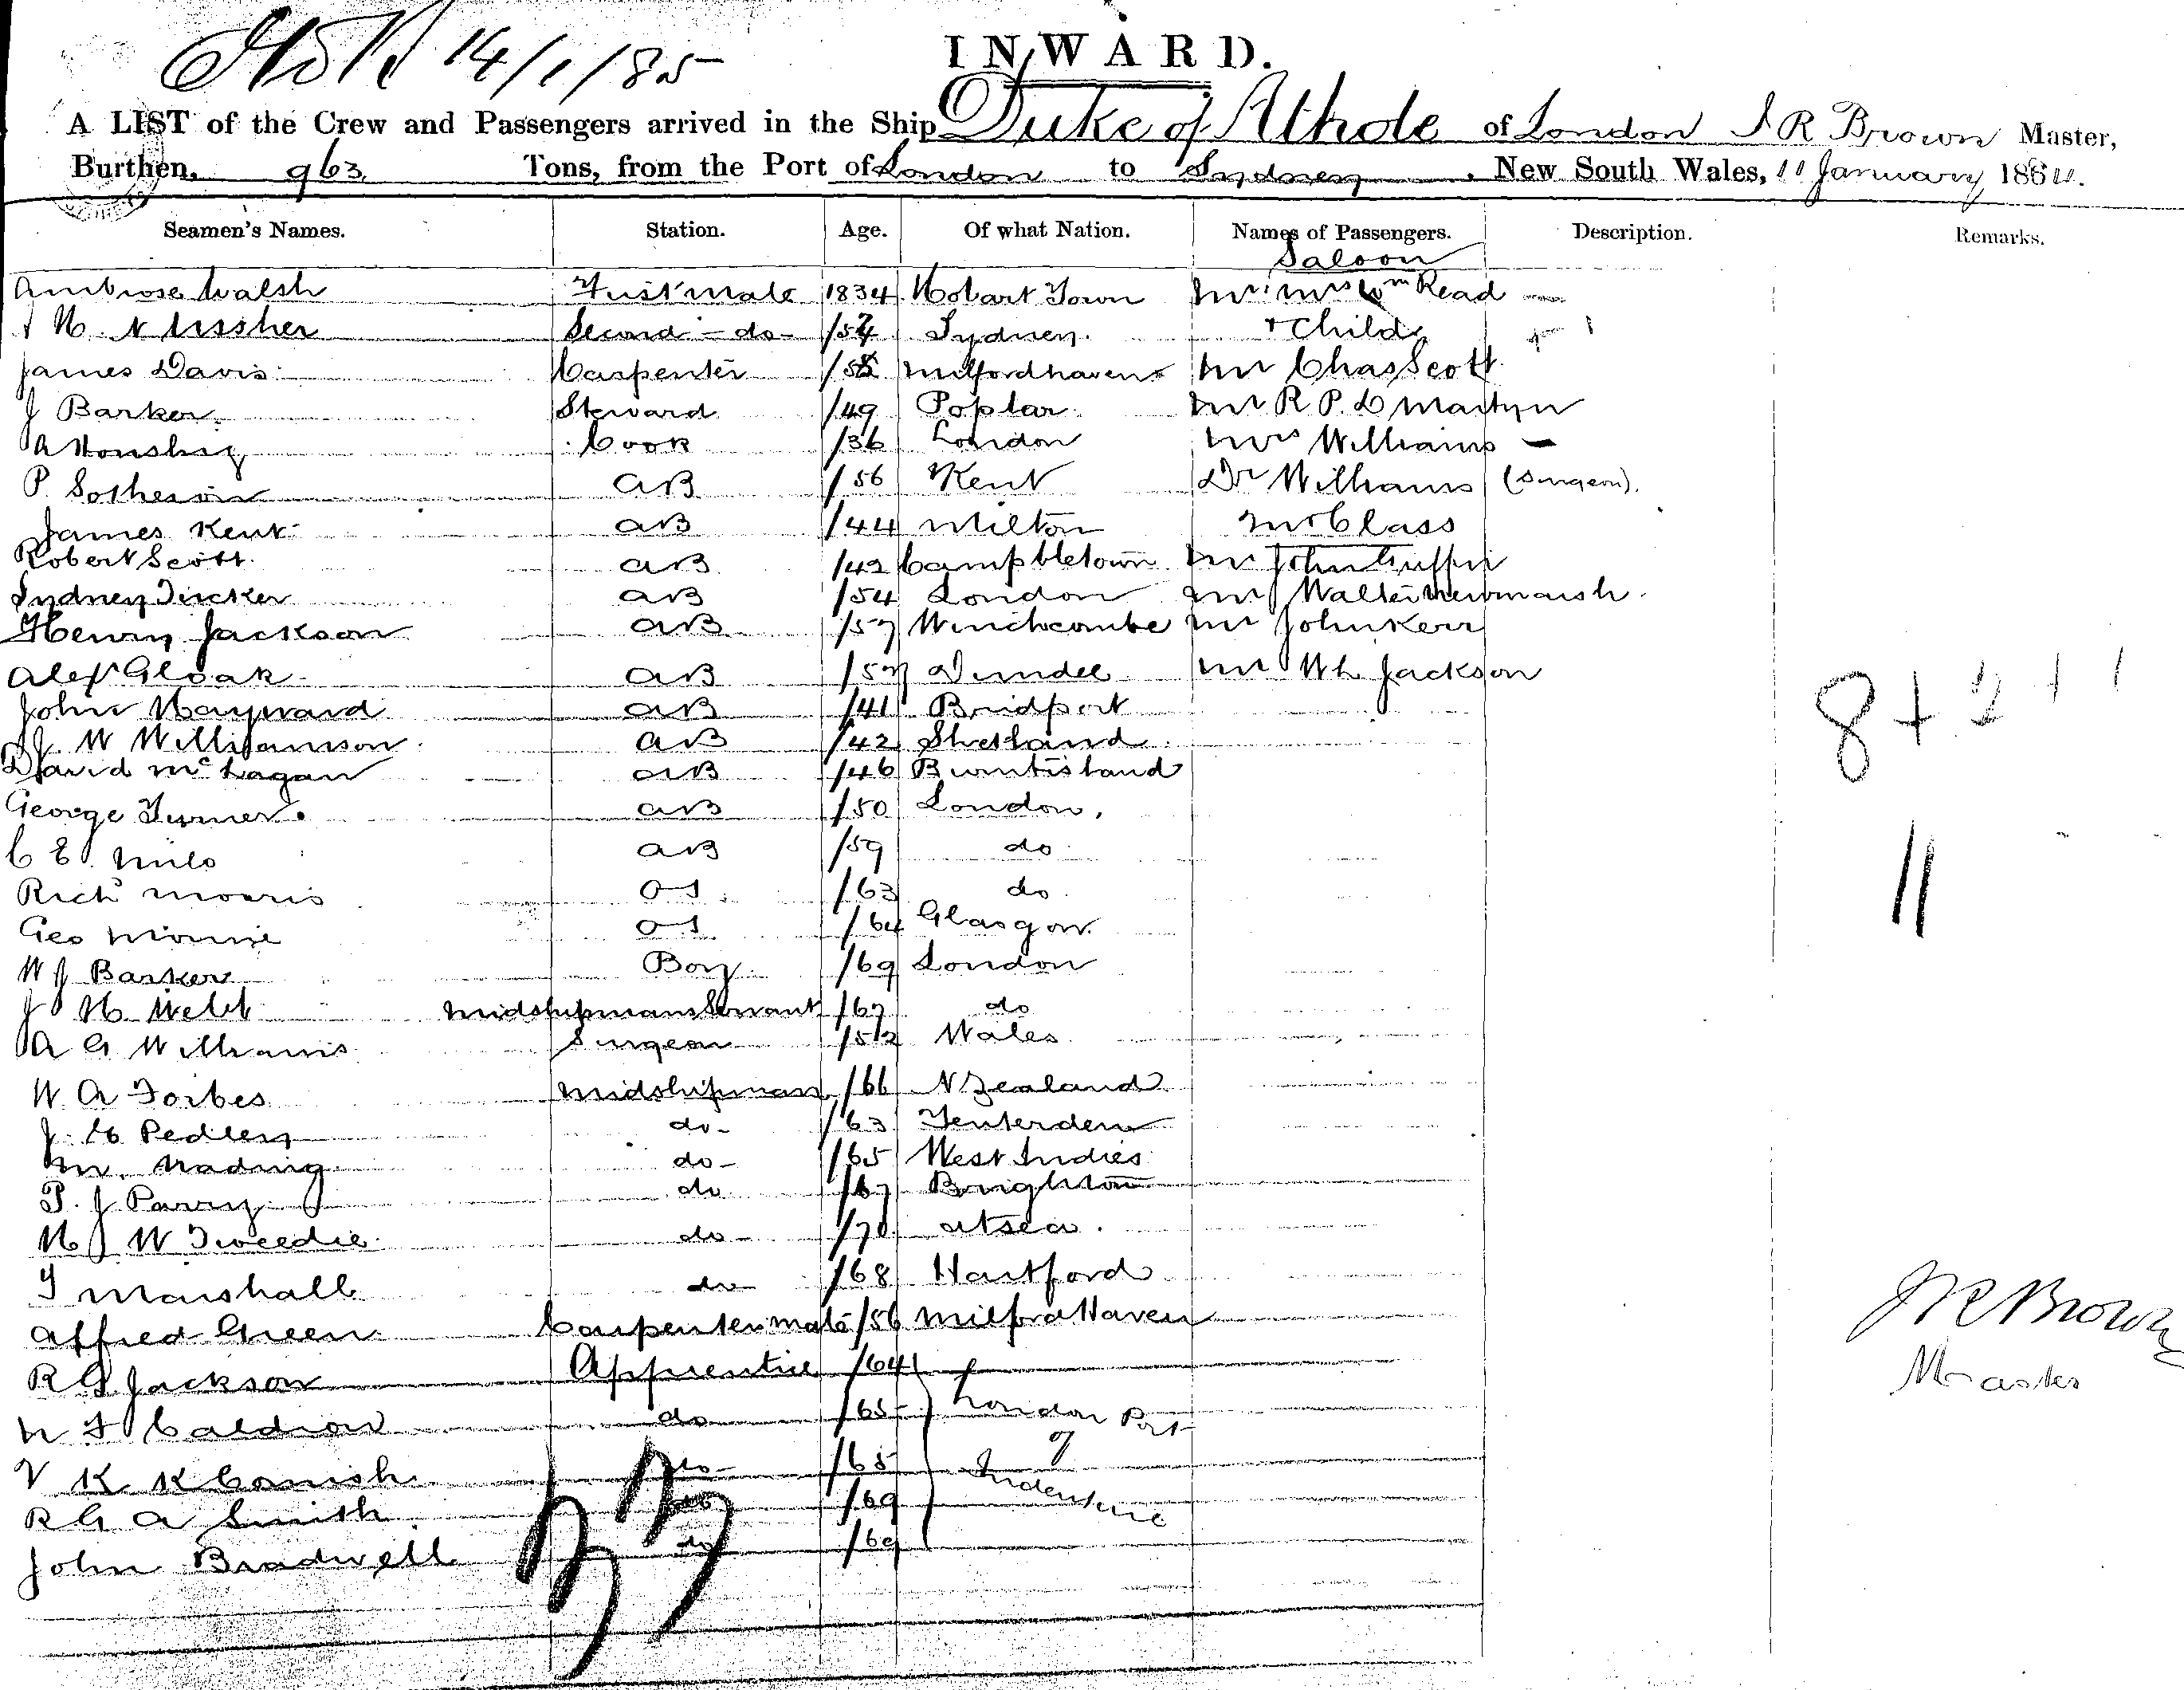 14/1/85
INWARD.
A LIST of the Crew and Passengers arrived in the Ship Duke of Athole of London J R Brown Master,
Burthen, 963 Tons, from the Port of London to Sydney, New South Wales, 11 January 188
Seamen's Names. Station. Age. Of what Nation. Names of Passengers. Description. Remarks.
Saloon
Ambrose Walsh First Mate 1834 Hobart Town Mr. Mrs Wm Read
H. N Ussher Second do /54 Sydney. + Child
James Davis Carpenter /58 Milfordhaven Mr Chas Scott
J Barker Steward /49 Poplar Mr R. P. D Martyn
A Cook /36 London Mrs Williams
P. Sotheran AB /56 Kent Dr Williams (Surgeon).
James Kent AB /44 Milton Mr Class
Robert Scott AB /42 Campbletown Mr John Griffin
Sydney Tucker AB /54 London Mr Walter Newmarsh
Henry Jackson AB /57 Winchcombe Mr John Kerr
Alex Gloak AB /57 Dundee Mr Wh Jackson
John Hayward AB /41 Bridport
J. W Williamson AB /42 Shetland
David McLagan AB /46 Burntisland
George Turner AB /50 London,
C E. Mils AB /59 do
Rich Morris OS /63 do
Geo OS /64 Glasgow
W J Barker Boy /69 London
J H Webb Midshipmans Servant /67 do
A G Williams Surgeon /52 Wales
W. A Forbes Midshipman /66 N Zealand
J. H Pedley do /63 Tenterden
M. Nading do /65 West Indies
P. J Parry do /67 Brighton
H J W Tweedie do /70 at sea.
T Marshall do /68 Hartford
Alfred Green Carpenters mate /56 Milford Haven
R G Jackson Apprentice /64
N F Caldrow do /65 London Port
V K K Cornish do /65 of
R G A Smith do /69 Indenture
John Bradwell do /69
37
8 + 2 1 1
11
J R Brown
Master